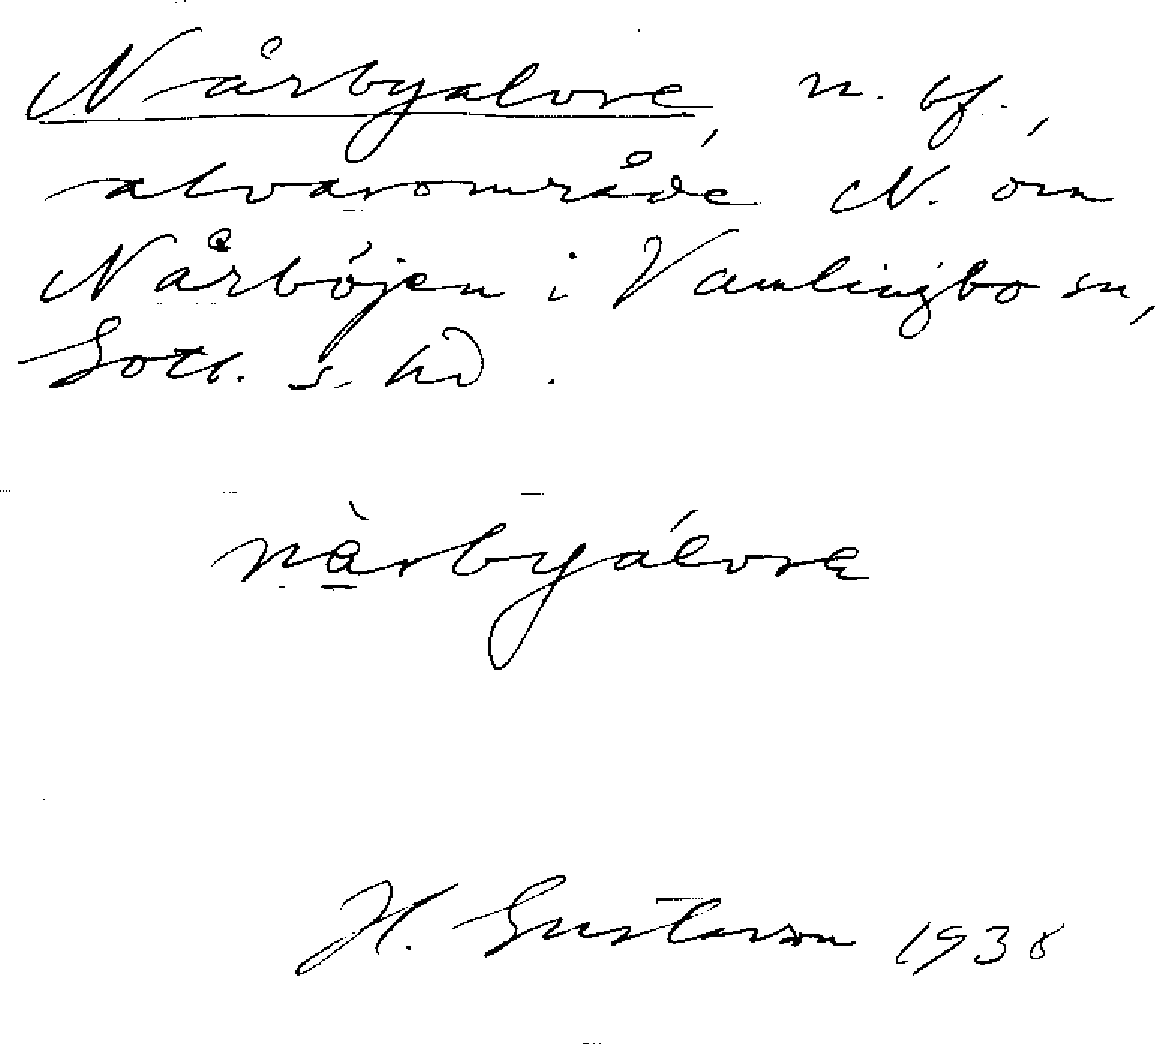 Nårbyalvre, n. bf.,
alvarområde N. om
Nårböjen i Vamlingbo sn,
Gotl. s. hd.
nàrbyálvrɛ
H. Gustavson 1938